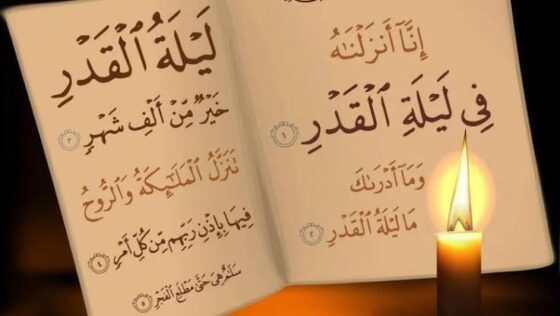 إِنَّآ أَنزَلْنَٰهُ
فِي لَيْلَةِ ٱلْقَدْرِ ١
وَمَآ أَدْرَىٰكَ
مَا لَيْلَةُ ٱلْقَدْرِ ٢
لَيْلَةُ ٱلْقَدْرِ
خَيْرٌ مِّنْ أَلْفِ شَهْرٍ ٣
تَنَزَّلُ ٱلْمَلَٰٓئِكَةُ وَٱلرُّوحُ
فِيهَا بِإِذْنِ رَبِّهِم مِّن كُلِّ أَمْرٍ ٤
سَلَٰمٌ هِيَ حَتَّىٰ مَطْلَعِ ٱلْفَجْرِ ٥